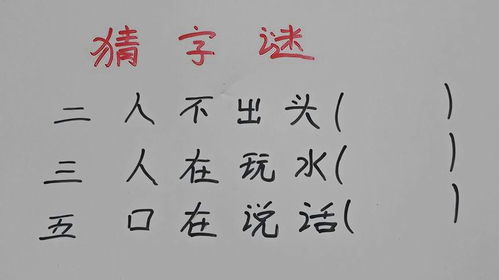 猜字谜
二人不出头( )
三人在玩水( )
五口在说话( )